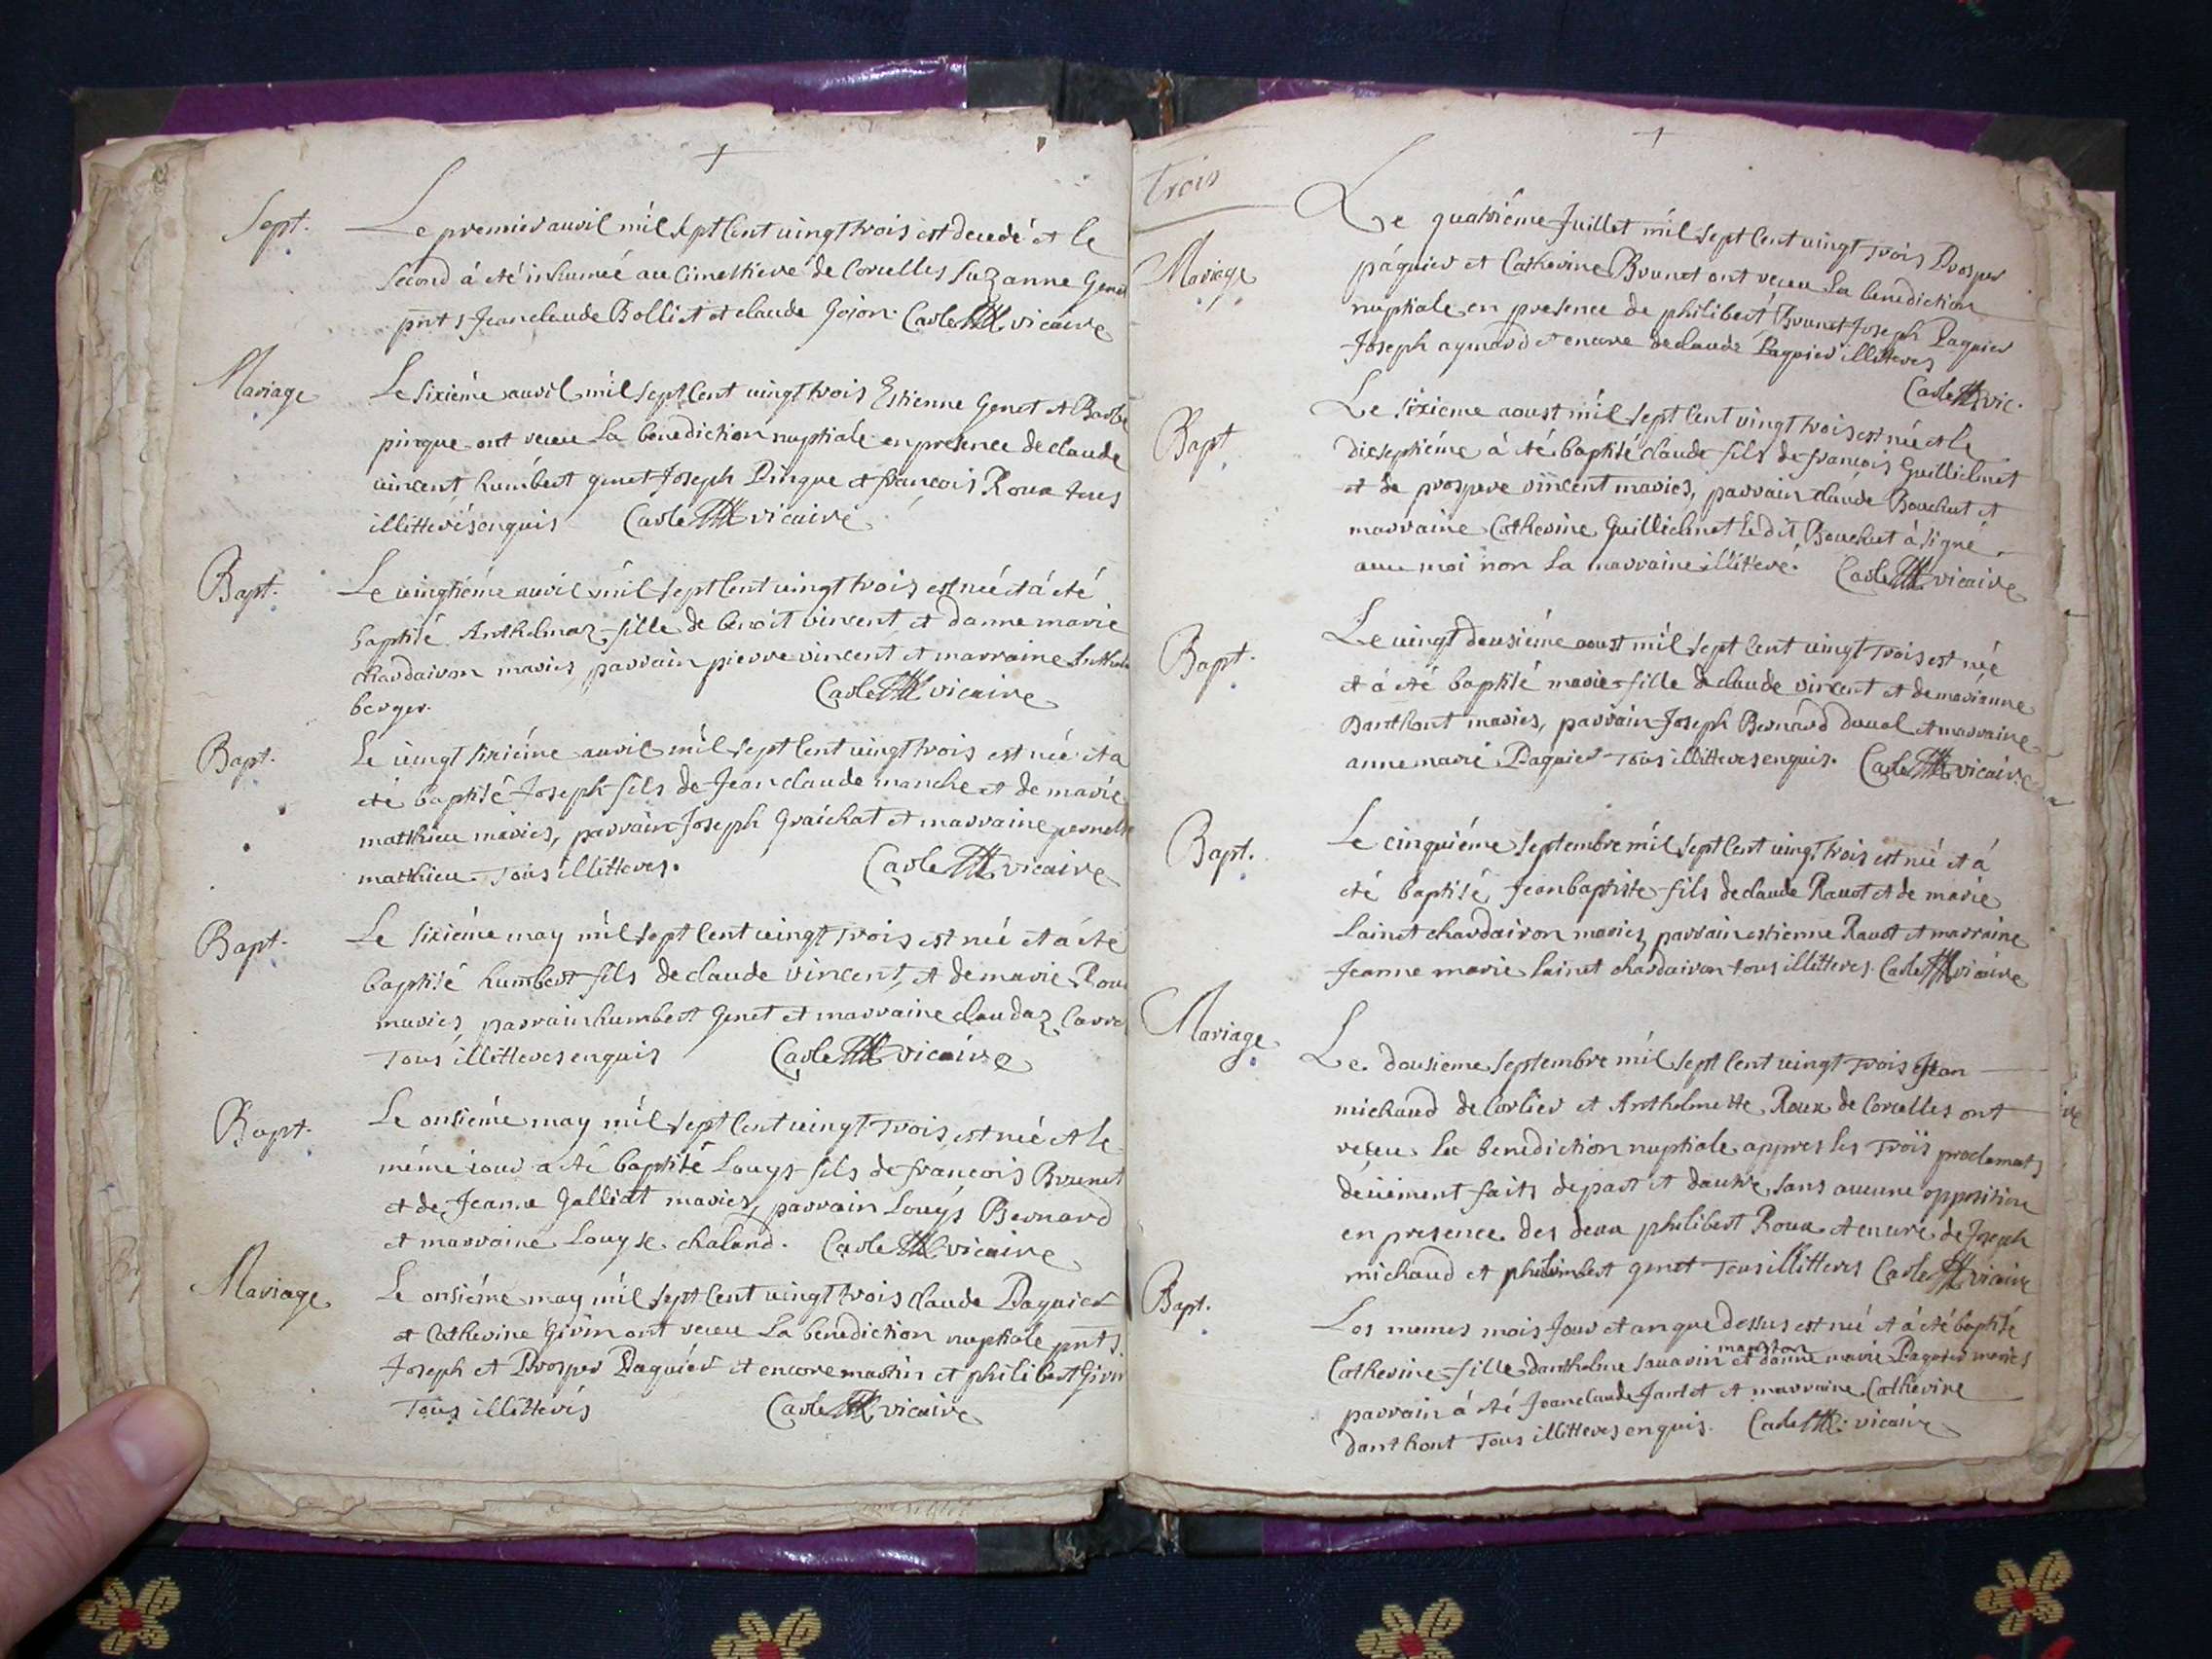 Sept.
Le premier auril mil sept Cent uingt trois est decedé et le
second à été inhumée au Cimettiere de Corcelles Suzanne Genet
pnts Jeanclaude Bolliet et claude Goion. Carle vicaire
Mariage
Le sixiéme auril mil sept Cent uingt trois Estienne Genet et Barbe
pingue ont receu La benediction nuptiale en presence de claude
uincent humbert genet Joseph Pingue et francois Roux tous
illitterés enquis Carle vicaire
Bapt.
Le uingtiéme auril mil sept Cent uingt trois est née et à été
baptisé Anthelmaz fille de benoit vincent et danne marie
chardairon mariés parrain pierre vincent et marraine
berger. Carle vicaire
Bapt.
Le uingt sixiéme auril mil sept Cent uingt trois est née et a
été baptisé Joseph fils de Jeanclaude manche et de marie
matthieu mariés, parrain Joseph Graichat et marraine pernette
matthieu. Tous illitteres. Carle vicaire
Bapt.
Le sixiéme may mil sept Cent uingt trois est né et a été
baptisé humbert fils de claude vincent, et de marie Roux
mariés parrain humbert Genet et marraine claudaz
Tous illitteres enquis Carle vicaire
Bapt.
Le onsiéme may mil sept Cent uingt trois est né et le
méme iour a été baptisé Louys fils de francois Brunet
et de Jeanne Galliat mariés, parrain Louys Bernard
et marraine Louyse chaland. Carle vicaire
Mariage
Le onsiéme may mil sept Cent uingt trois claude Paguier
et Catherine Girin ont receu La benediction nuptiale pnts.
Joseph et Prosper Paguier et encore martin et philibert Girin
Tous illitterés Carle vicaire
Trois
Mariage
Le quatriéme Juillet mil sept Cent uingt trois Prosper
páguier et Catherine Brunet ont receu La benediction
nuptiale en presence de philibert Brunet Joseph Paguier
Joseph aymard et encore de claude Paguier illitteres
Carle vic.
Bapt.
Le sixieme aoust mil sept Cent vingt trois est né et le
dieseptiéme à été baptisé claude fils de francois Guillielmet
et de prospere vincent mariés, parrain claude Bouchut et
marraine Catherine Guillielmet Ledit Bouchut à signé
auec moi non La marraine illiteré. Carle vicaire
Bapt.
Le uingt deusiéme aoust mil sept Cent uingt trois est née
et à été baptisé marie fille de claude vincent et de marianne
Danthont mariés, parrain Joseph Bernard duual et marraine
anne marie Paguier Tous illitteres enquis. Carle vicaire
Bapt.
Le cinquiéme septembre mil sept Cent uingt trois est né et á
été baptisé Jean baptiste fils de claude Rauot et de marie
Lainet chardairon mariés parrain estienne Rauot et marraine
Jeanne marie Lainet chardairon tous illitteres. Carle vicaire
Mariage
Le dousieme septembre mil sept Cent uingt trois Jean
michaud de Corlier et Anthelmette Roux de Corcelles ont
receu La benediction nuptiale appres les trois proclamats
deüement faits de part et dautre, sans aucune opposition
en presence des deux philibert Roux et encore de Joseph
michaud et genet Tous illitteres Carle vicaire
Bapt.
Les memes mois Jour et an que dessus est né et à été baptisé
Catherine fille danthelme Sauarin et danne marie Paguier mariés
parrain à été Jeanclaude Jantet et marraine Catherine
danthont Tous illitteres enquis. Carle vicaire